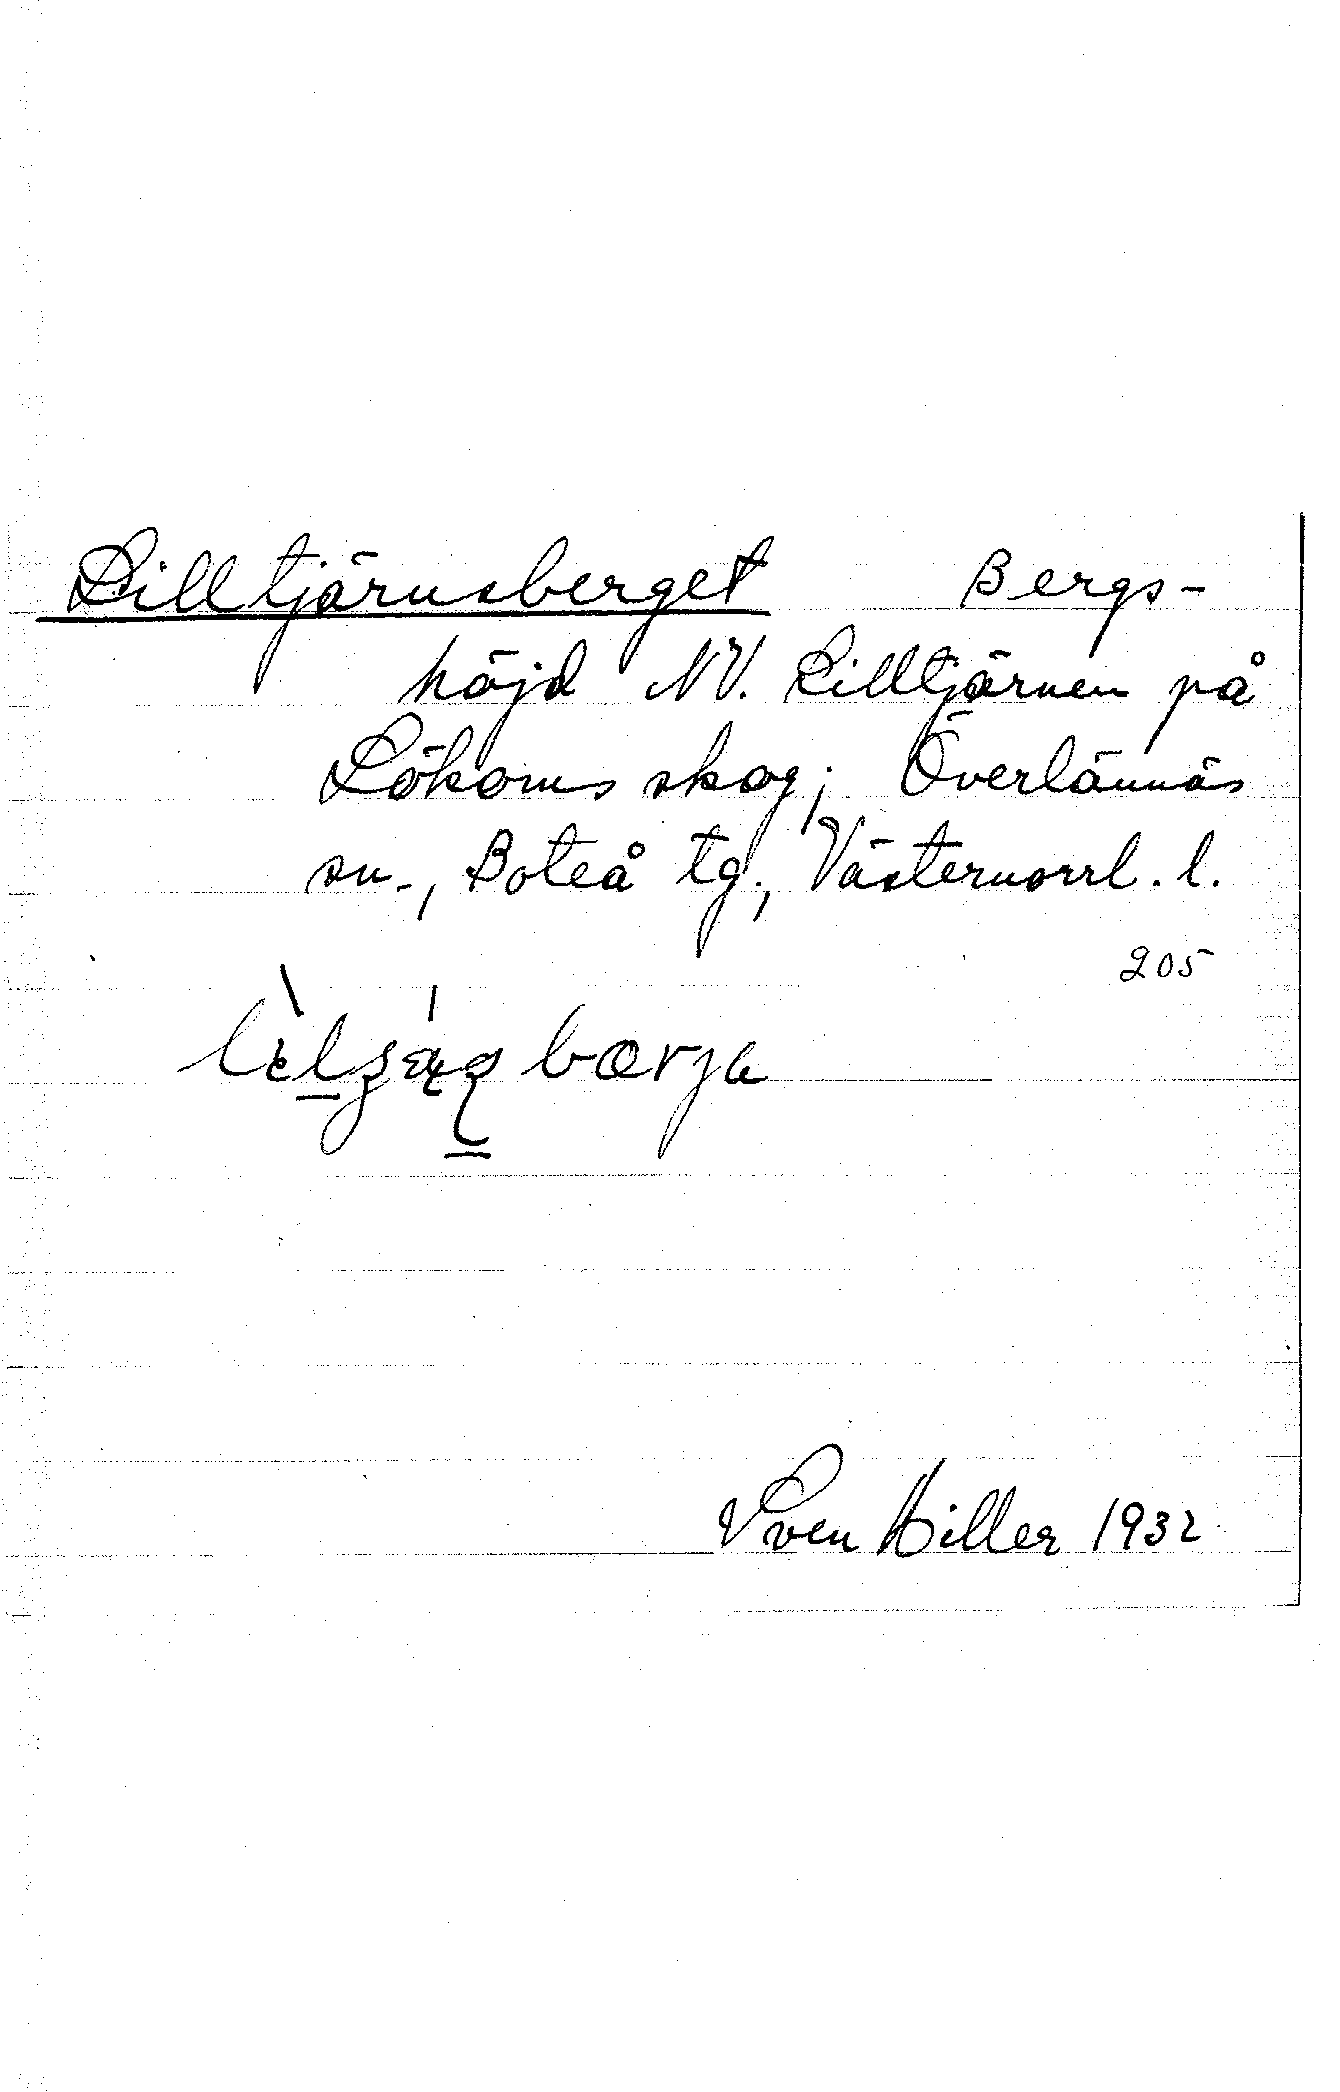 Lilltjärnsberget Bergs-
höjd NV. Lilltjärnen på
Lökoms skog; Överlännäs
sn., Boteå tg., Västernorrl. l.
205
bærja
Sven Hiller 1932